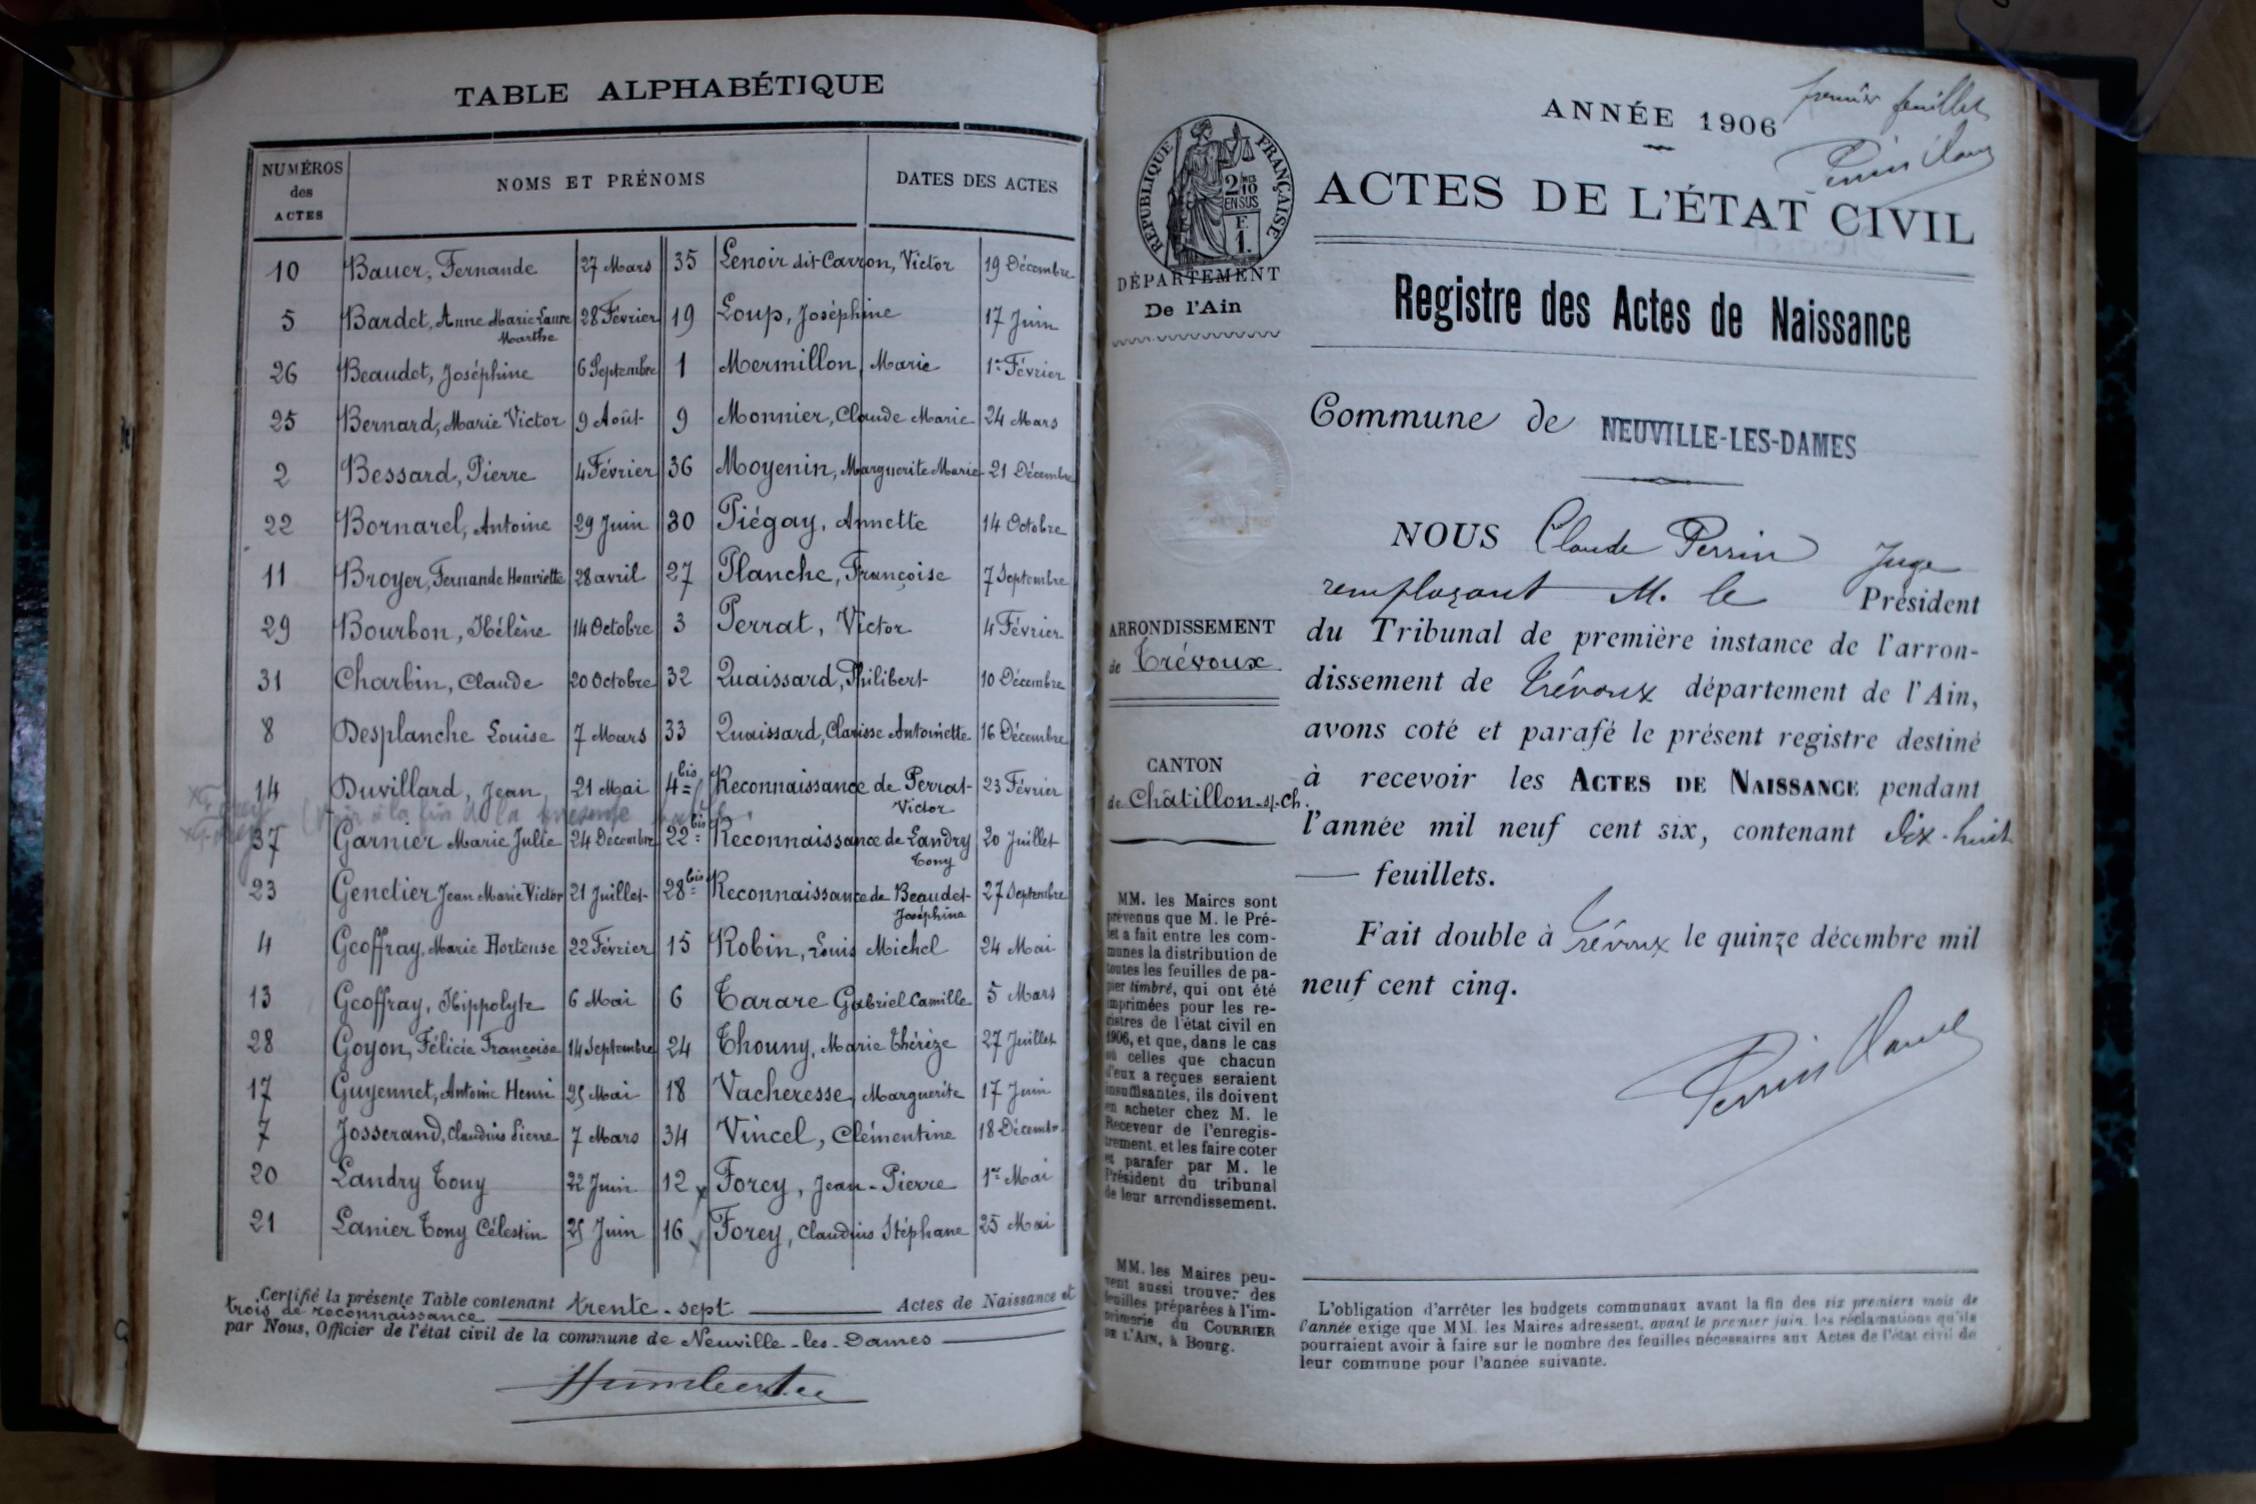 TABLE ALPHABÉTIQUE
NUMÉROS des ACTES
NOMS ET PRÉNOMS
DATES DES ACTES
10 Bauer, Fernande 27 Mars
5 Bardet, Anne Marie Laure Marthe 28 Février
26 Beaudet, Joséphine 6 Septembre
25 Bernard, Marie Victor 9 Août
2 Bessard, Pierre 4 Février
22 Bornarel, Antoine 29 Juin
11 Broyer, Fernande Henriette 28 avril
29 Bourbon, Hélène 14 Octobre
31 Charbin, Claude 20 Octobre
8 Desplanche Louise 7 Mars
14 Duvillard, Jean 21 Mai
(Voir à la fin de la présente
37 Garnier Marie Julie 24 Décembre
23 Genetier Jean Marie Victor 21 Juillet
4 Geoffray, Marie Hortense 22 Février
13 Geoffray, Hippolyte 6 Mai
28 Goyon, Félicie Françoise 14 Septembre
17 Guyennet, Antoine Henri 25 Mai
7 Josserand, Claudius Pierre 7 Mars
20 Landry Tony 22 Juin
21 Lanier Tony Célestin 25 Juin
35 Lenoir dit Carron, Victor 19 Décembre
19 Loup, Joséphine 17 Juin
1 Mermillon, Marie 1er Février
9 Monnier, Claude Marie 24 Mars
36 Moyenin, Marguerite Marie 21 Décembre
30 Piégay, Annette 14 Octobre
27 Planche, Françoise 7 Septembre
3 Perrat, Victor 4 Février
32 Quaissard, Philibert 10 Décembre
33 Quaissard, Clarisse Antoinette 16 Décembre
4 bis Reconnaissance de Perrat Victor 23 Février
22 bis Reconnaissance de Landry Tony 20 Juillet
28 bis Reconnaissance de Beaudet Joséphine 27 Septembre
15 Robin, Louis Michel 24 Mai
6 Tarare Gabriel Camille 5 Mars
24 Thouny, Marie Thérèze 27 Juillet
18 Vacheresse, Marguerite 17 Juin
34 Vincel, Clémentine 18 Décembr
12 x Forey, Jean-Pierre 1er Mai
16 x Forey, Claudius Stéphane 25 Mai
Certifié la présente Table contenant trente-sept Actes de Naissance et
trois de reconnaissance
par Nous, Officier de l'état civil de la commune de Neuville-les-Dames
premier feuillet
ANNÉE 1906
ACTES DE L'ÉTAT CIVIL
Registre des Actes de Naissance
Commune de NEUVILLE-LES-DAMES
NOUS Claude Perrin Juge
remplaçant M. le Président
du Tribunal de première instance de l'arron-
dissement de Trévoux département de l'Ain,
avons coté et parafé le présent registre destiné
à recevoir les ACTES DE NAISSANCE pendant
l'année mil neuf cent six, contenant dix-huit
feuillets.
Fait double à Trévoux le quinze décembre mil
neuf cent cinq.
RÉPUBLIQUE FRANÇAISE
2/10 EN SUS
F. 1.
DÉPARTEMENT
De l'Ain
ARRONDISSEMENT
de Trévoux
CANTON
de Châtillon-s/-Ch.
MM. les Maires sont
prévenus que M. le Pré-
fet a fait entre les com-
munes la distribution de
toutes les feuilles de pa-
pier timbré, qui ont été
imprimées pour les re-
gistres de l'état civil en
1906, et que, dans le cas
où celles que chacun
d'eux a reçues seraient
insuffisantes, ils doivent
en acheter chez M. le
Receveur de l'enregis-
trement, et les faire coter
et parafer par M. le
Président du tribunal
de leur arrondissement.
MM. les Maires peu-
vent aussi trouver des
feuilles préparées à l'im-
primerie du COURRIER
DE L'AIN, à Bourg.
L'obligation d'arrêter les budgets communaux avant la fin des six premiers mois de
l'année exige que MM. les Maires adressent, avant le premier juin, les réclamations qu'ils
pourraient avoir à faire sur le nombre des feuilles nécessaires aux Actes de l'état civil de
leur commune pour l'année suivante.